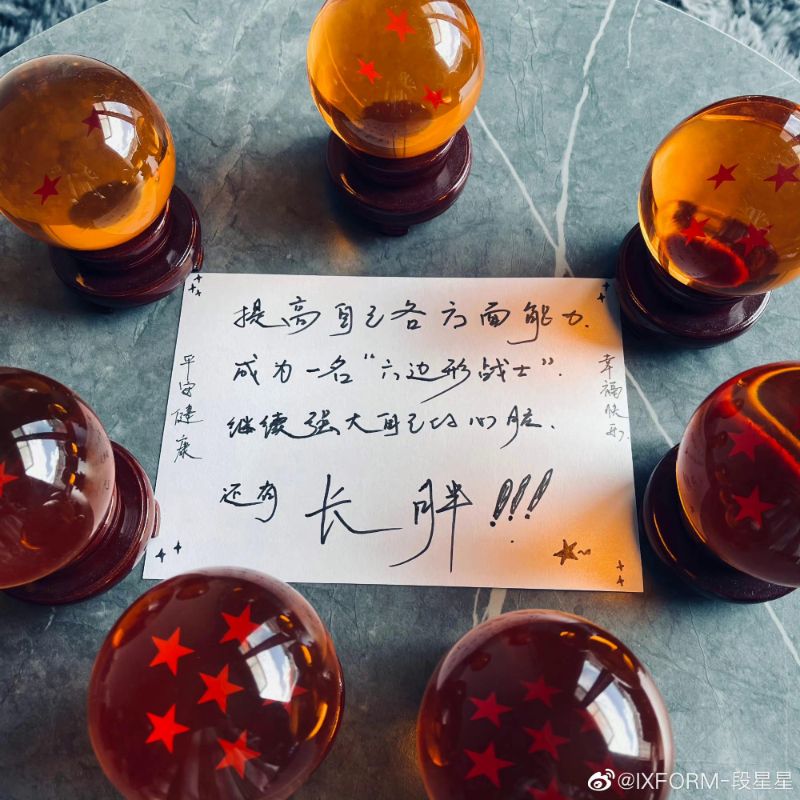 提高自己各方面能力.
成为一名“六边形战士”.
继续强大自己的心脏.
还有 长胖!!!
平安健康
幸福快乐.
@IXFORM-段星星